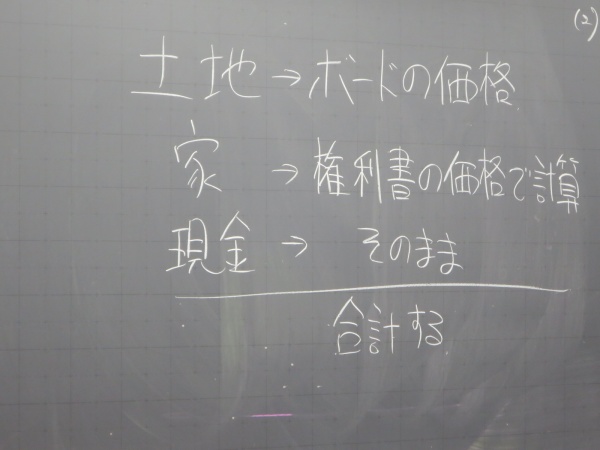 (2)
土地→ボードの価格
家→権利書の価格で計算
現金→そのまま
合計する